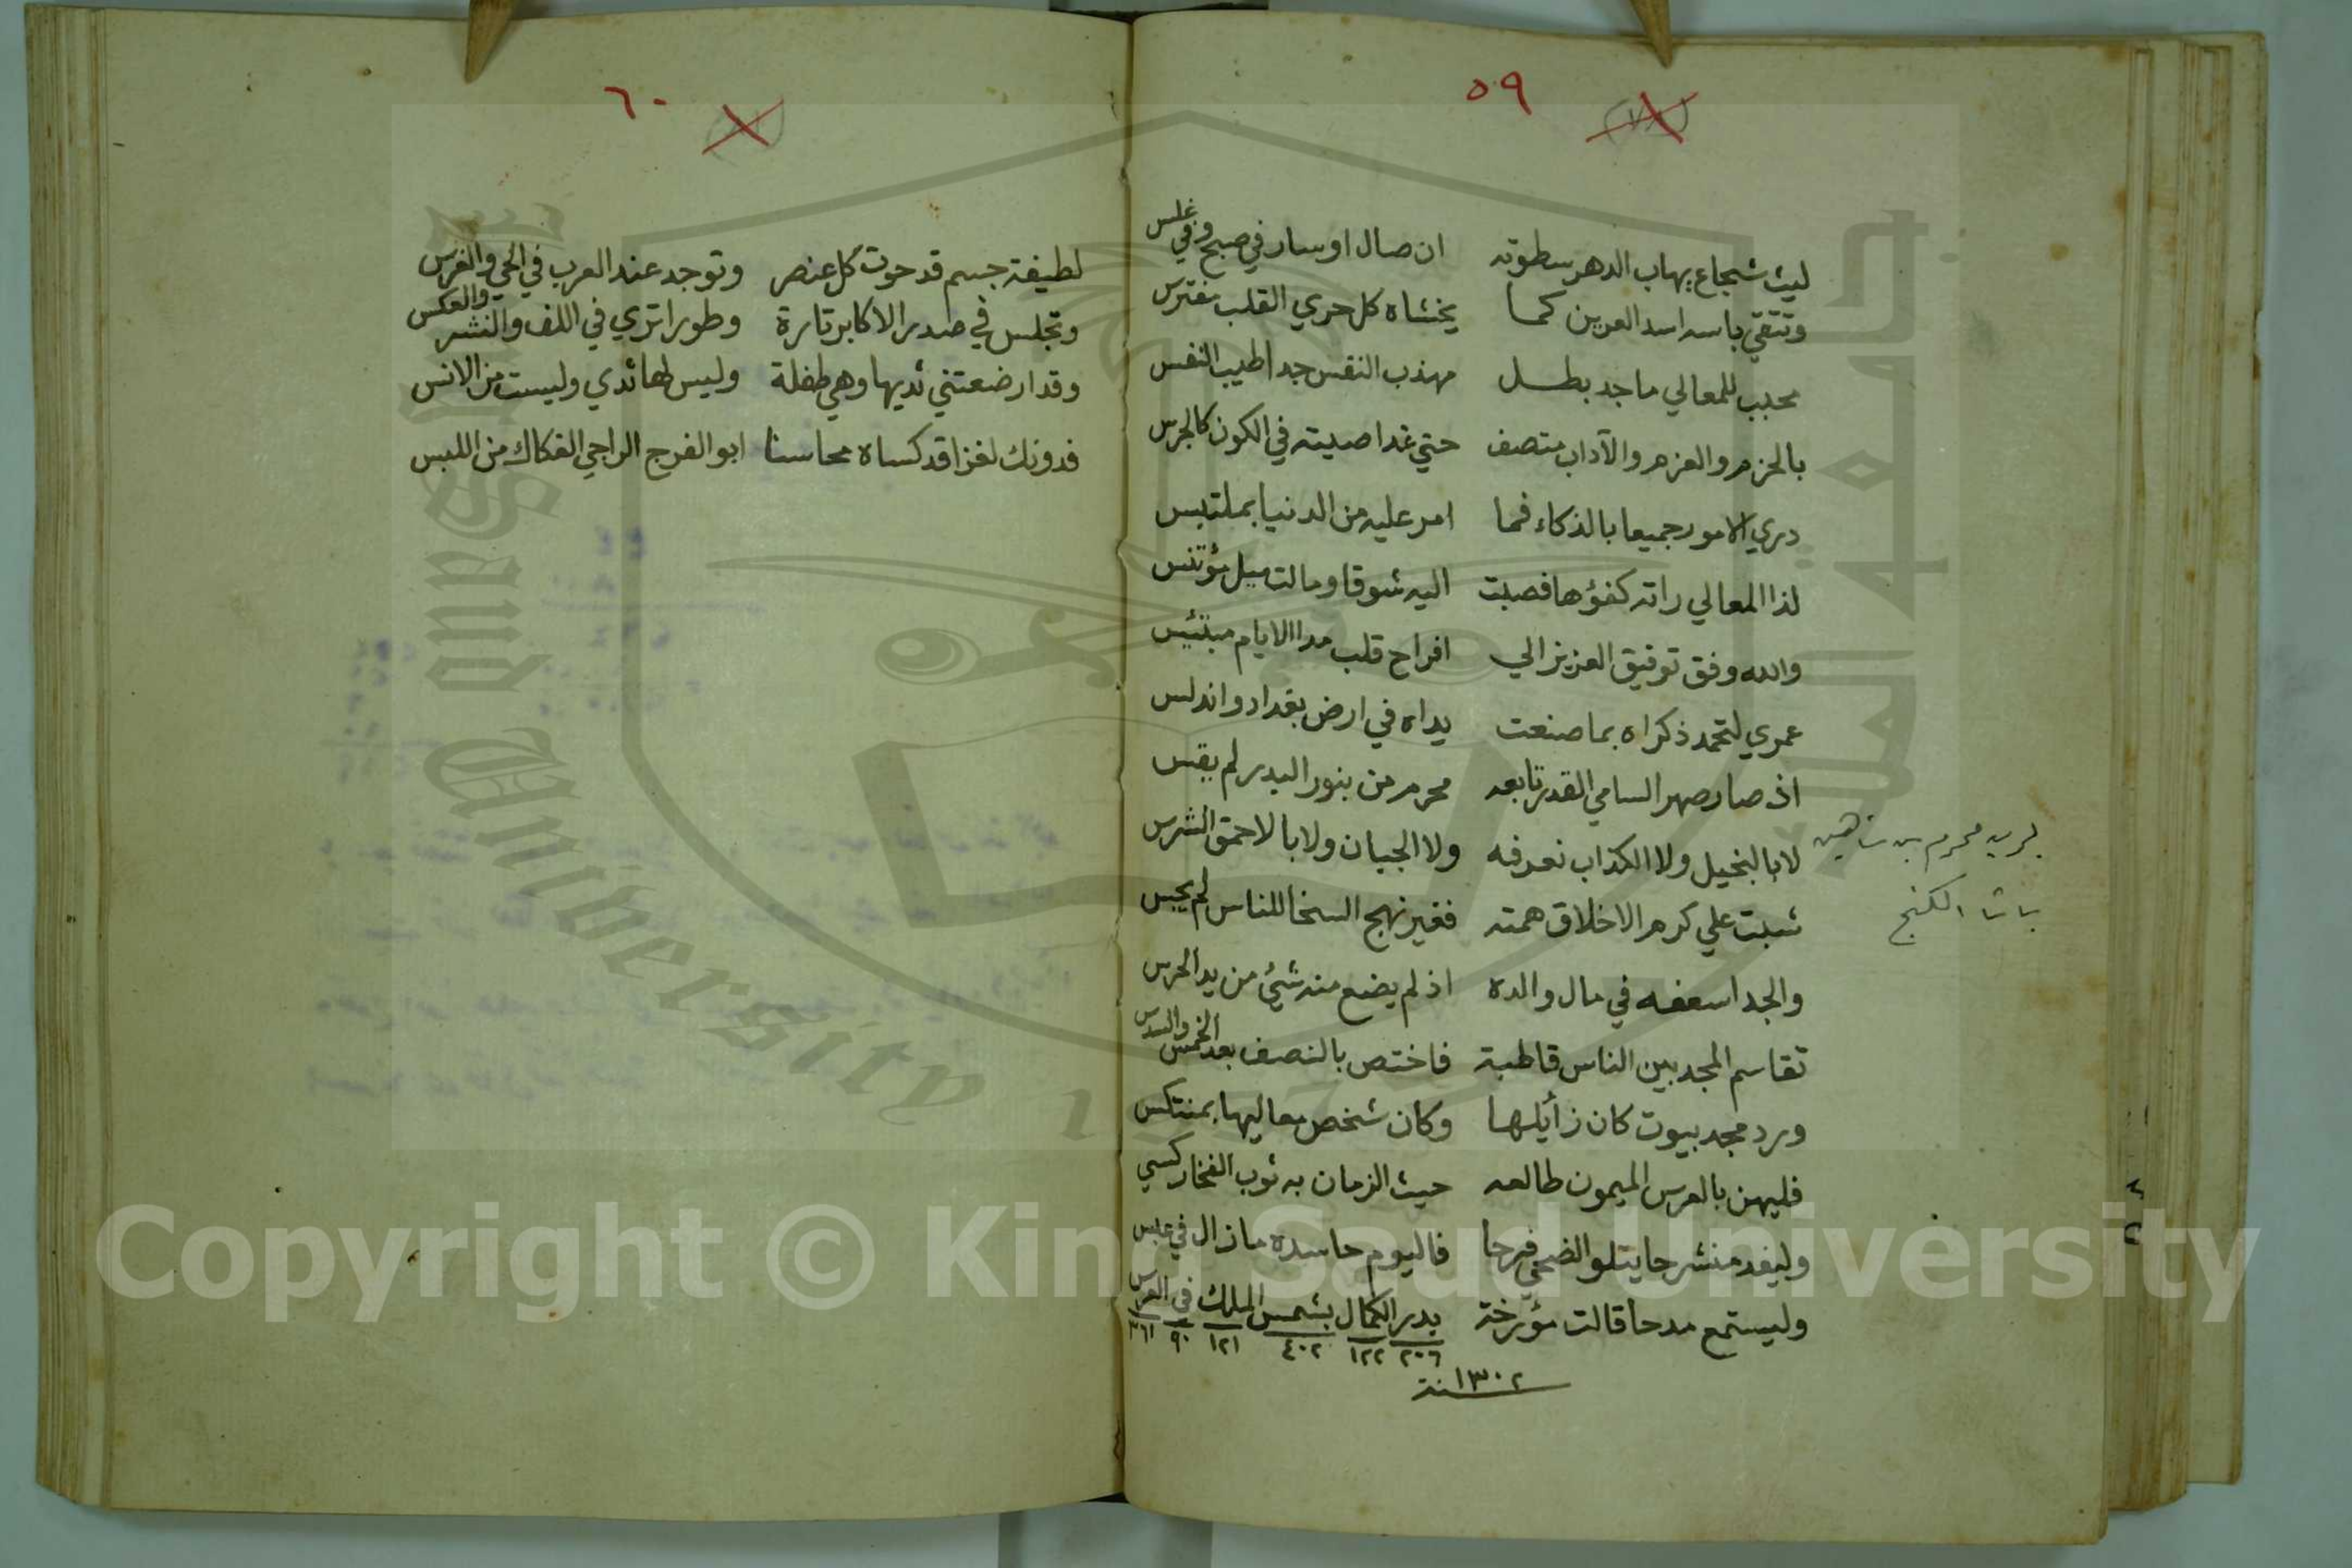 ٥٩
ليث شجاع يهاب الدهر سطوته ان صال او سار في صبح وفي غلس
وتتقي باسه اسد العرين كما يخشاه كل جري القلب مفترس
محبب للمعالي ماجد بطل مهذب النفس جدا طيب النفس
بالحزم والعزم والآداب متصف حتي غدا صيته في الكون كالجرس
دري الامور جميعا بالذكاء فما امر عليه من الدنيا بملتبس
لذا المعالي راته كفؤها فصبت اليه شوقا ومالت ميل مؤتنس
والله وفق توفيق العزيز الي افراح قلب مدا الايام مبتئيس
عمري لتحمد ذكراه بما صنعت يداه في ارض بغداد واندلس
اذ صار صهر السامي القدر تابعه محرم من بنور البدر لم يقس
لا بالبخيل ولا الكذاب نعرفه ولا الجبان ولا بالاحمق الشرس
يريد محرم بن شاهين
باشا الكنج
شبت علي كرم الاخلاق همته فغير نهج السخا للناس لم يجس
والجد اسعفه في مال والده اذ لم يضع منه شيئ من يد الحرس
تقاسم المجد بين الناس قاطبة فاختص بالنصف بعد الخمس والسدس
ورد مجد بيوت كان زأيلها وكان شخص معاليها بمنتكس
فليهن بالعرس الميمون طالعه حيث الزمان به ثوب الفخار كسي
وليغد منشرحا يتلو الضحي فرحا فاليوم حاسده ما زال في عبس
وليستمع مدحا قالت مؤرخة بدر الكمال بشمس الملك في العرس
٢٠٦ ١٢٢ ٤٠٢ ١٢١ ٩٠ ٣٦١
سنة ١٣٠٢
٦٠
لطيفة جسم قد حوت كل عنصر وتوجد عند العرب في الحي والفرس
وتجلس في صدر الاكابر تارة وطورا تري في اللف والنشر والعكس
وقد ارضعتني ثديها وهي طفلة وليس لها ثدي وليست من الانس
فدونك لغزا قد كساه محاسنا ابو الفرج الراجي الفكاك من اللبس
Copyright © King Saud University
King Saud University
جامعة الملك سعود